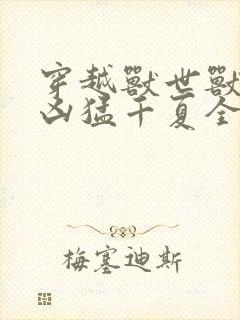 穿越獸世獸
凶猛千夏全
梅塞迪斯